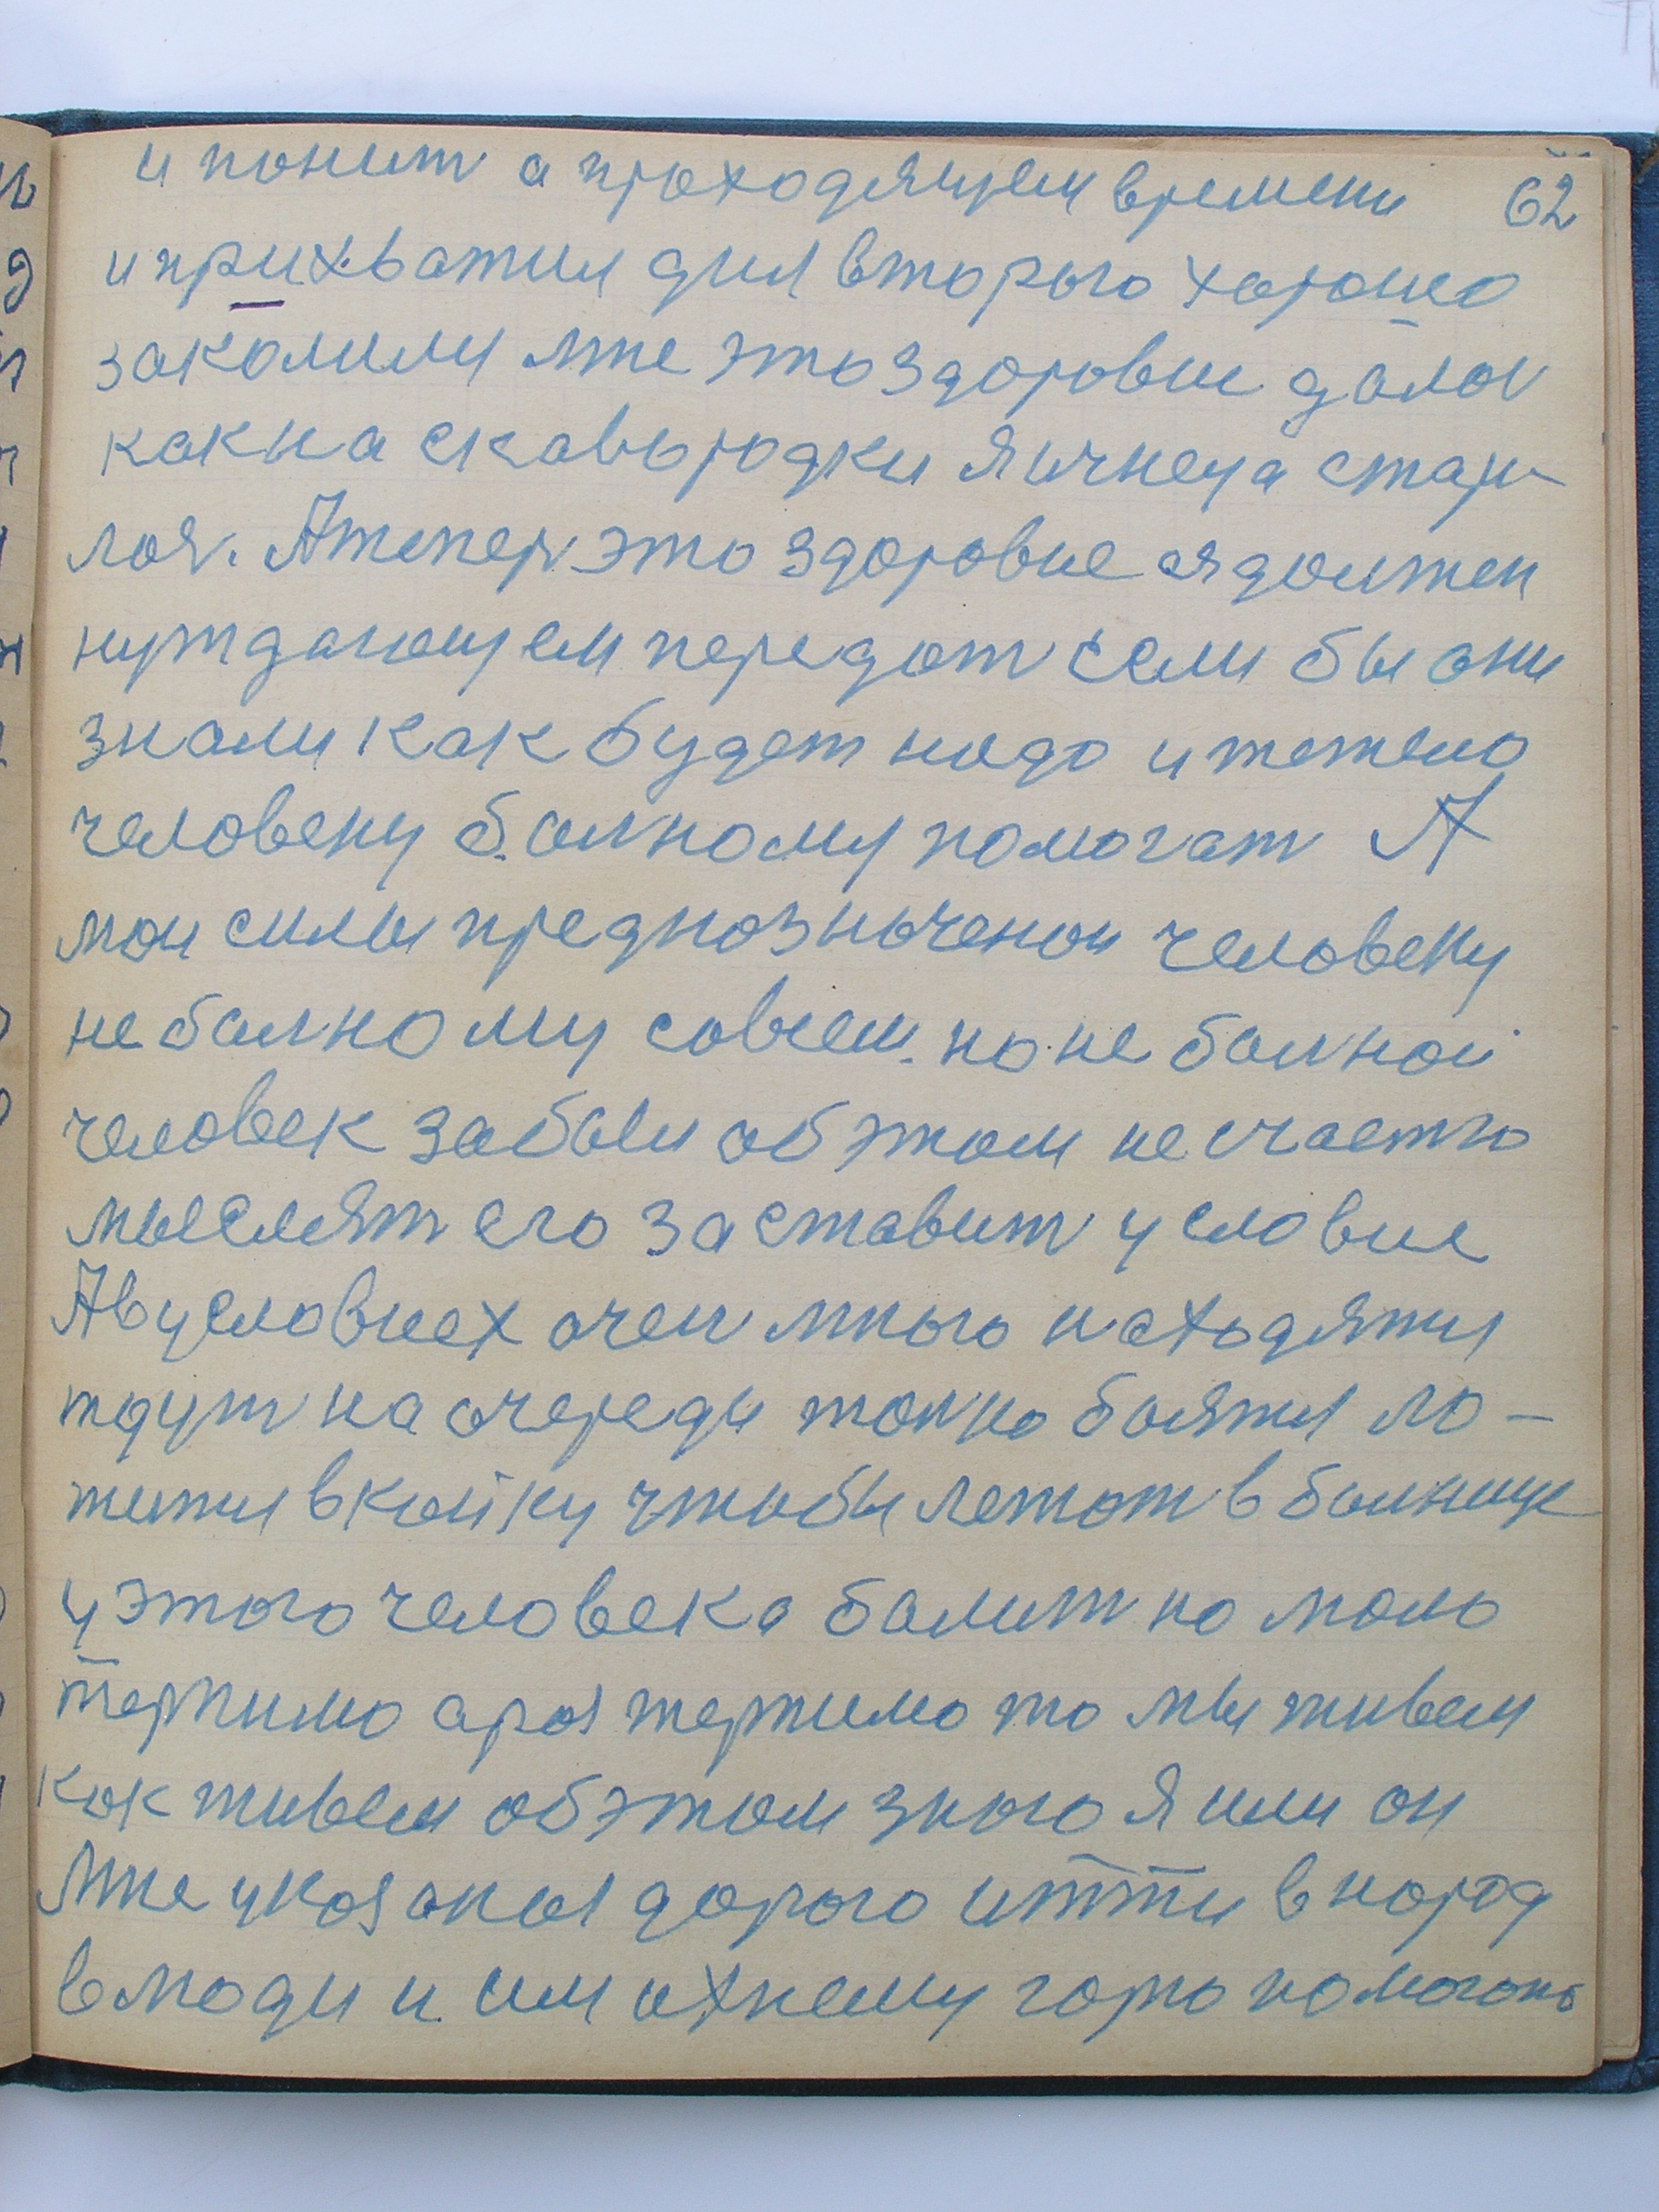 и понит а проходящем времени 62
и прихватил для второго хорошо
закалили мне это здоровие дало
как на скавыродки яичнеца стар-
лоя. А теперь это здоровие я должен
нуждающем передат если бы они
знали как будет надо и тежело
человеку балному помогат А
мои силы предназначенои человеку
не балному совсем но не балной
человек забыл об этом несчастю
мыслят его заставит условие
А в условиех очен много находятця
ждут на очереди толко боятця ло-
житця в койку чтобы лежат в балнице
у этого человека балит но мало
терпимо а раз терпимо то мы живем
как живем об этом знаю я или он
Мне указаныя дорого итти в народ
в люди и им ихнему горю помогаю